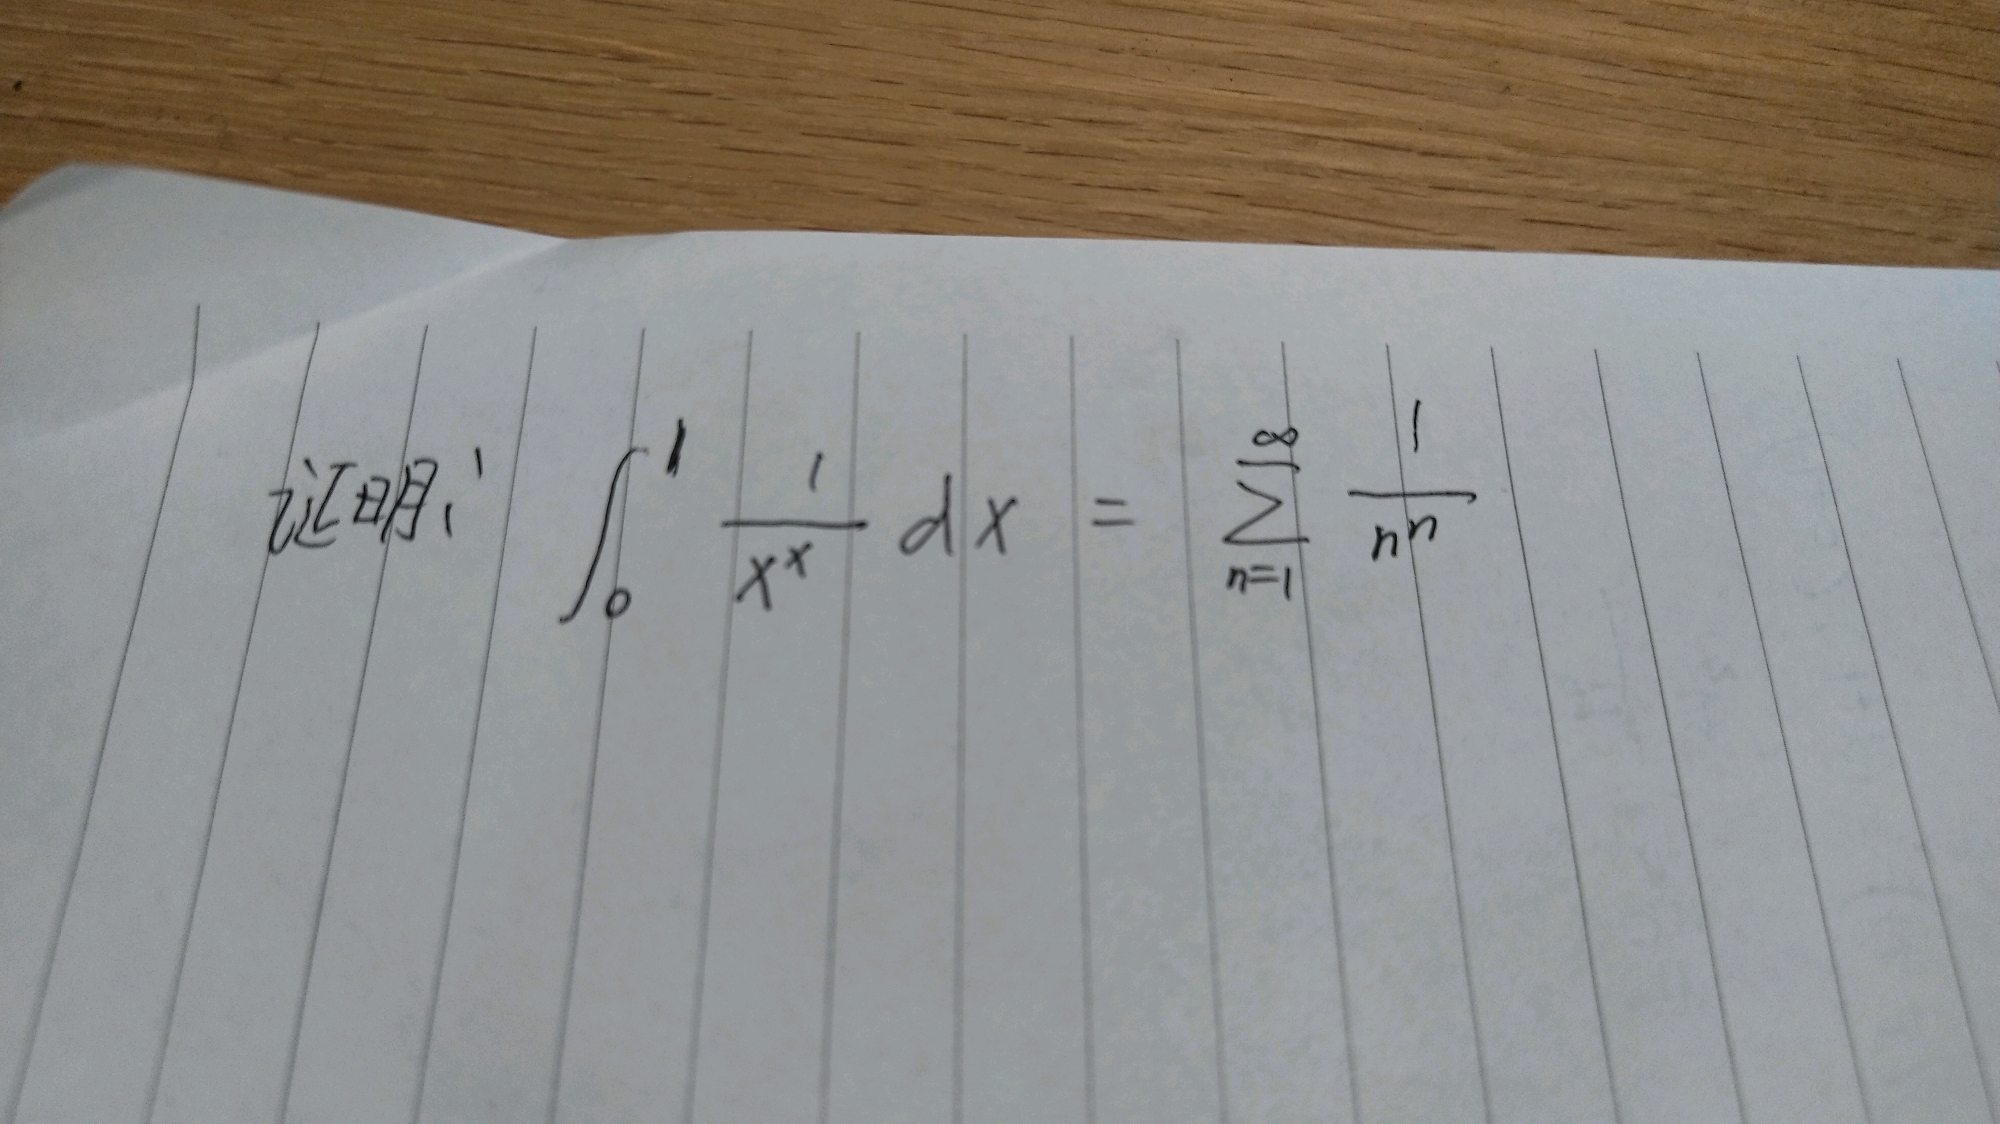 证明: ∫₀¹ 1/xˣ dx = ∑ₙ₌₁^∞ 1/nⁿ